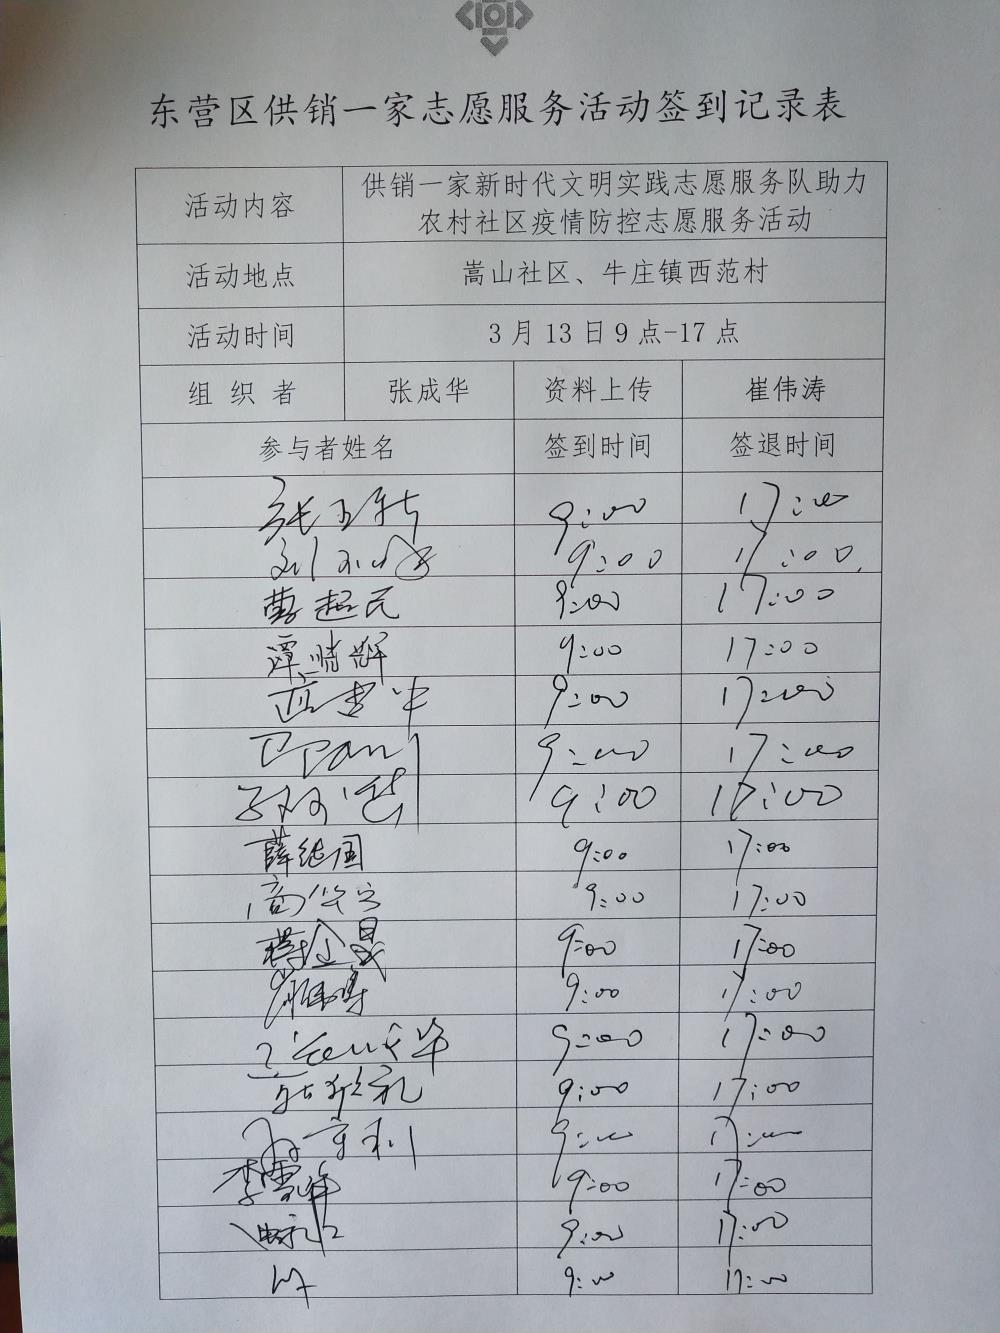 东营区供销一家志愿服务活动签到记录表
活动内容
供销一家新时代文明实践志愿服务队助力
农村社区疫情防控志愿服务活动
活动地点
嵩山社区、牛庄镇西范村
活动时间
3月13日9点-17点
组织者 张成华 资料上传 崔伟涛
参与者姓名 签到时间 签退时间
9:00 17:00
刘 9:00 17:00
曹超民 9:00 17:00
谭晓辉 9:00 17:00
9:00 17:00
9:00 17:00
9:00 17:00
薛继国 9:00 17:00
9:00 17:00
9:00 17:00
9:00 17:00
9:00 17:00
9:00 17:00
9:00 17:00
李雪峰 9:00 17:00
9:00 17:00
9:00 17:00